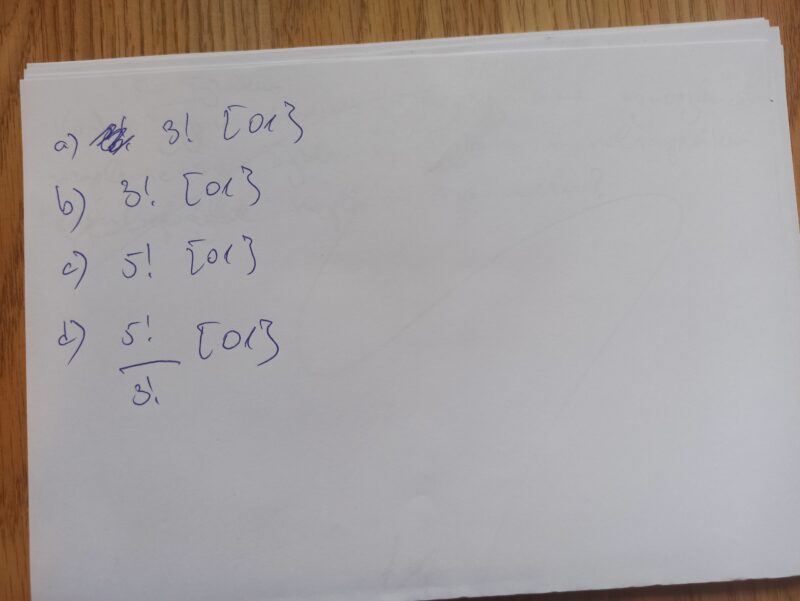 a) 3! [01}
b) 3! [01}
c) 5! [01}
d) 5! [01}
3!